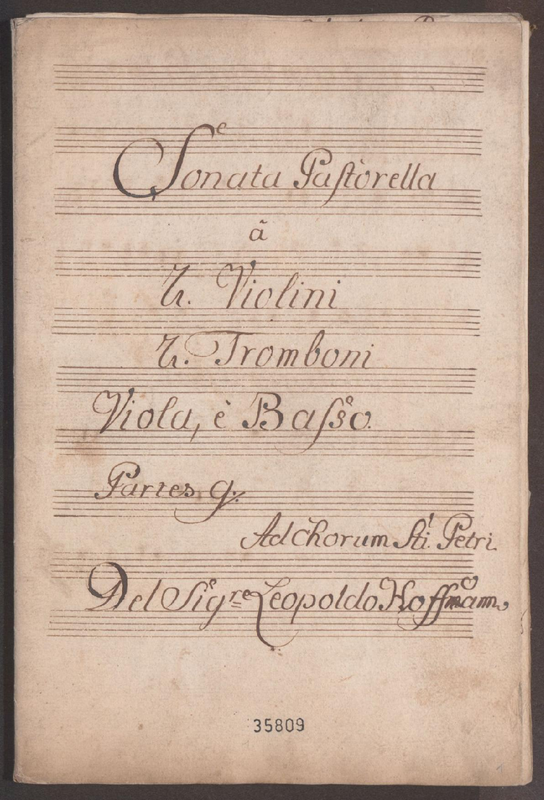 Sonata Pastorella
â
2. Violini
2. Tromboni
Viola, è Basso.
Partes 9.
Ad Chorum Sti. Petri.
Del Sigre Leopoldo Hoffmann
35809